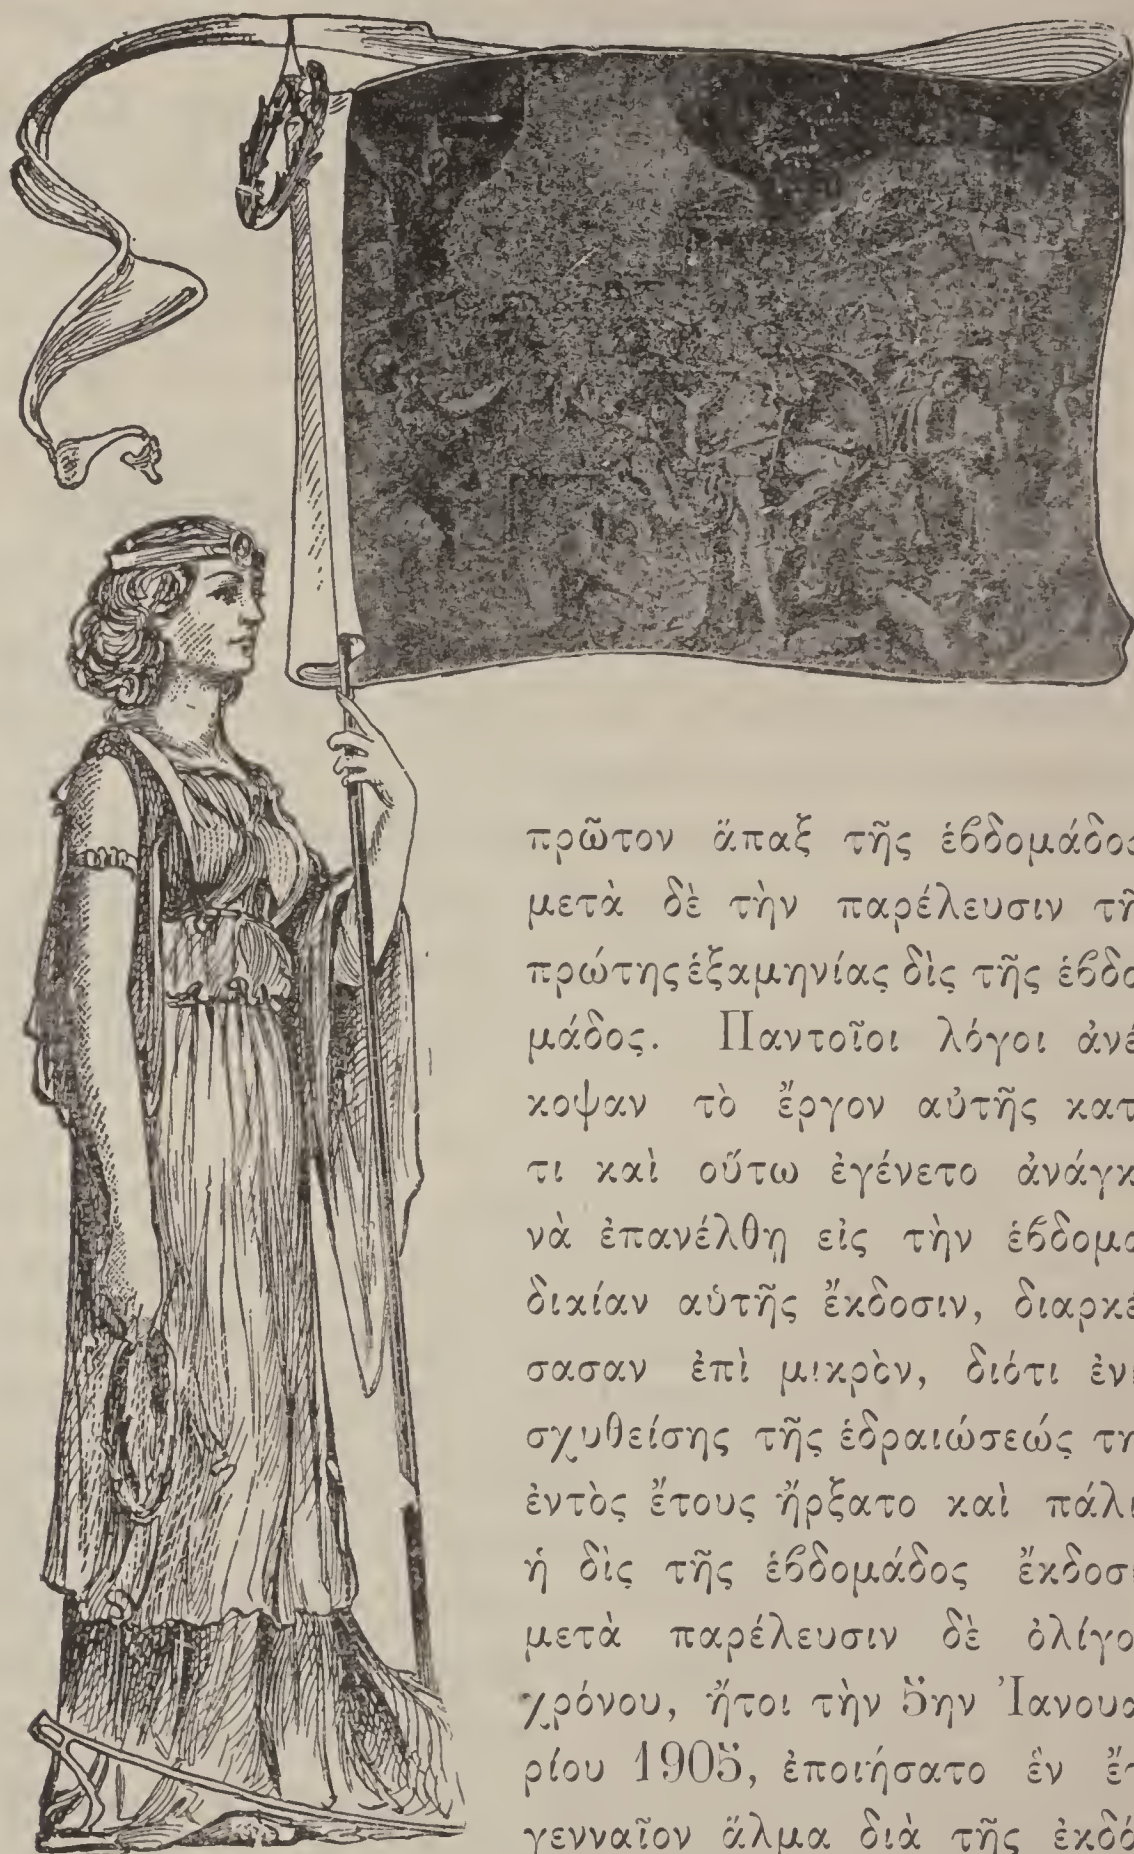 πρῶτον ἅπαξ τῆς ἑβδομάδος
μετὰ δὲ τὴν παρέλευσιν τῆ
πρώτης ἑξαμηνίας δὶς τῆς ἑβδο
μάδος. Παντοῖοι λόγοι ἀνέ
κοψαν τὸ ἔργον αὐτῆς κατ
τι καὶ οὕτω ἐγένετο ἀνάγκ
νὰ ἐπανέλθῃ εἰς τὴν ἑβδομα
διαίαν αὐτῆς ἔκδοσιν, διαρκέ
σασαν ἐπὶ μικρὸν, διότι ἐν
σχυθείσης τῆς ἑδραιώσεώς τη
ἐντὸς ἔτους ἤρξατο καὶ πάλι
ἡ δὶς τῆς ἑβδομάδος ἔκδοσι
μετὰ παρέλευσιν δὲ ὀλίγο
χρόνου, ἤτοι τὴν 5ην Ἰανουα
ρίου 1905, ἐποιήσατο ἓν ἔτ
γενναῖον ἅλμα διὰ τῆς ἐκδό